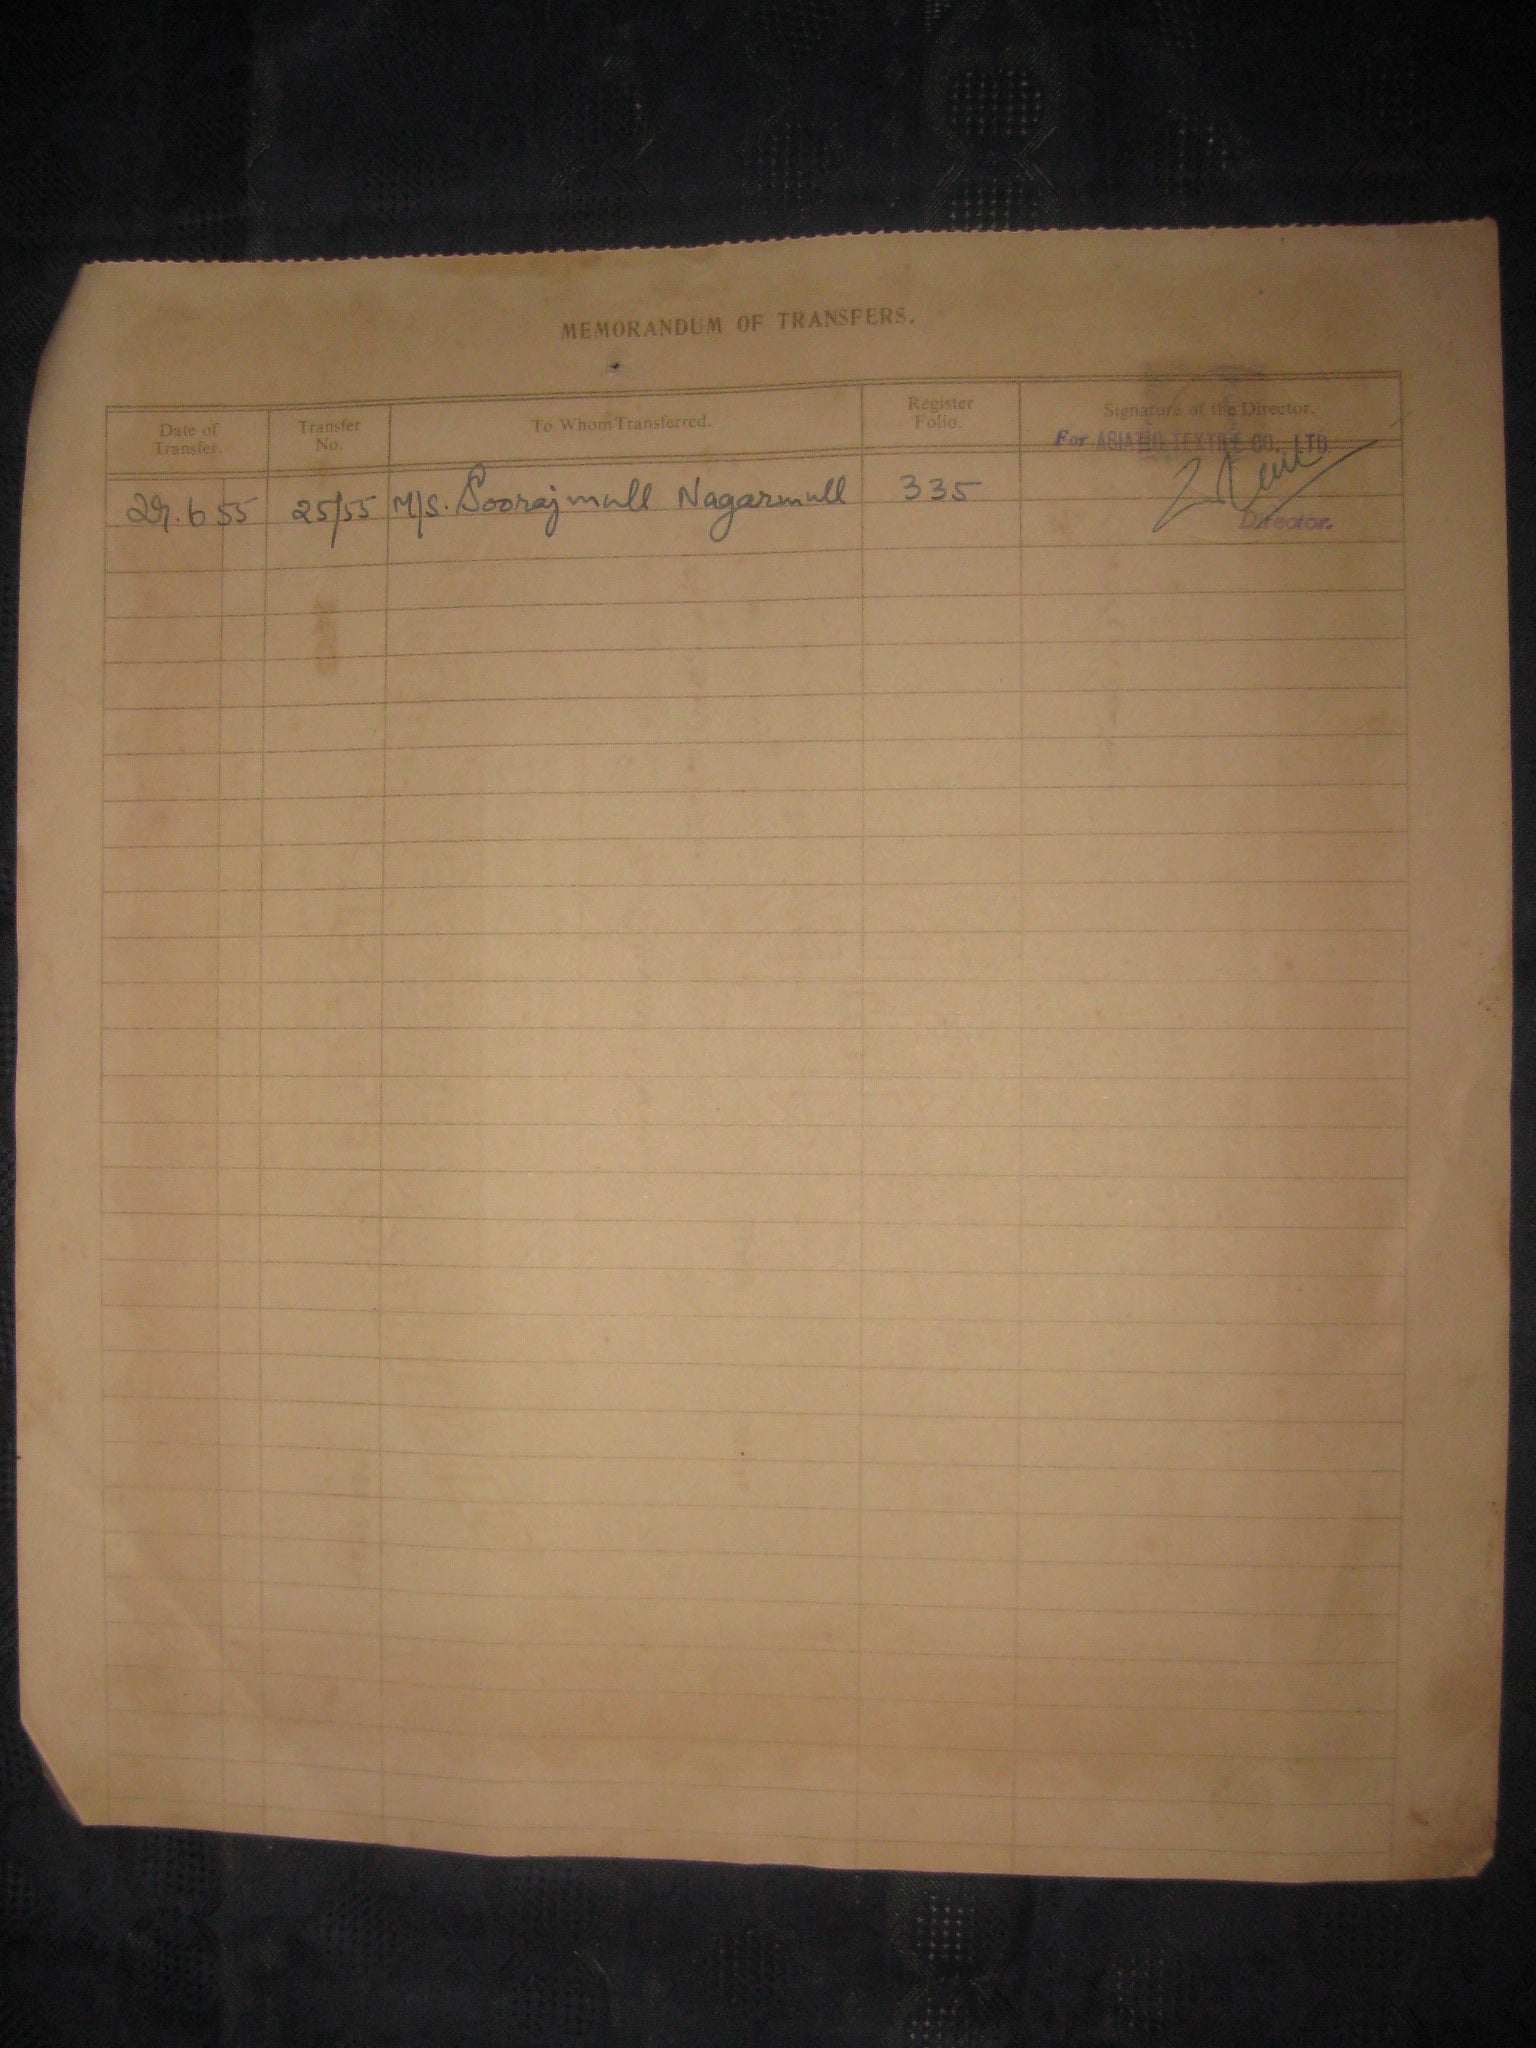 MEMORANDUM OF TRANSFERS.
Date of Transfer.
Transfer No.
To Whom Transferred.
Register Folio.
Signature of the Director.
For ASIATIC TEXTILE CO., LTD.
29.6 55 25/55 M/S. Soorajmull Nagarmull 335
Director.